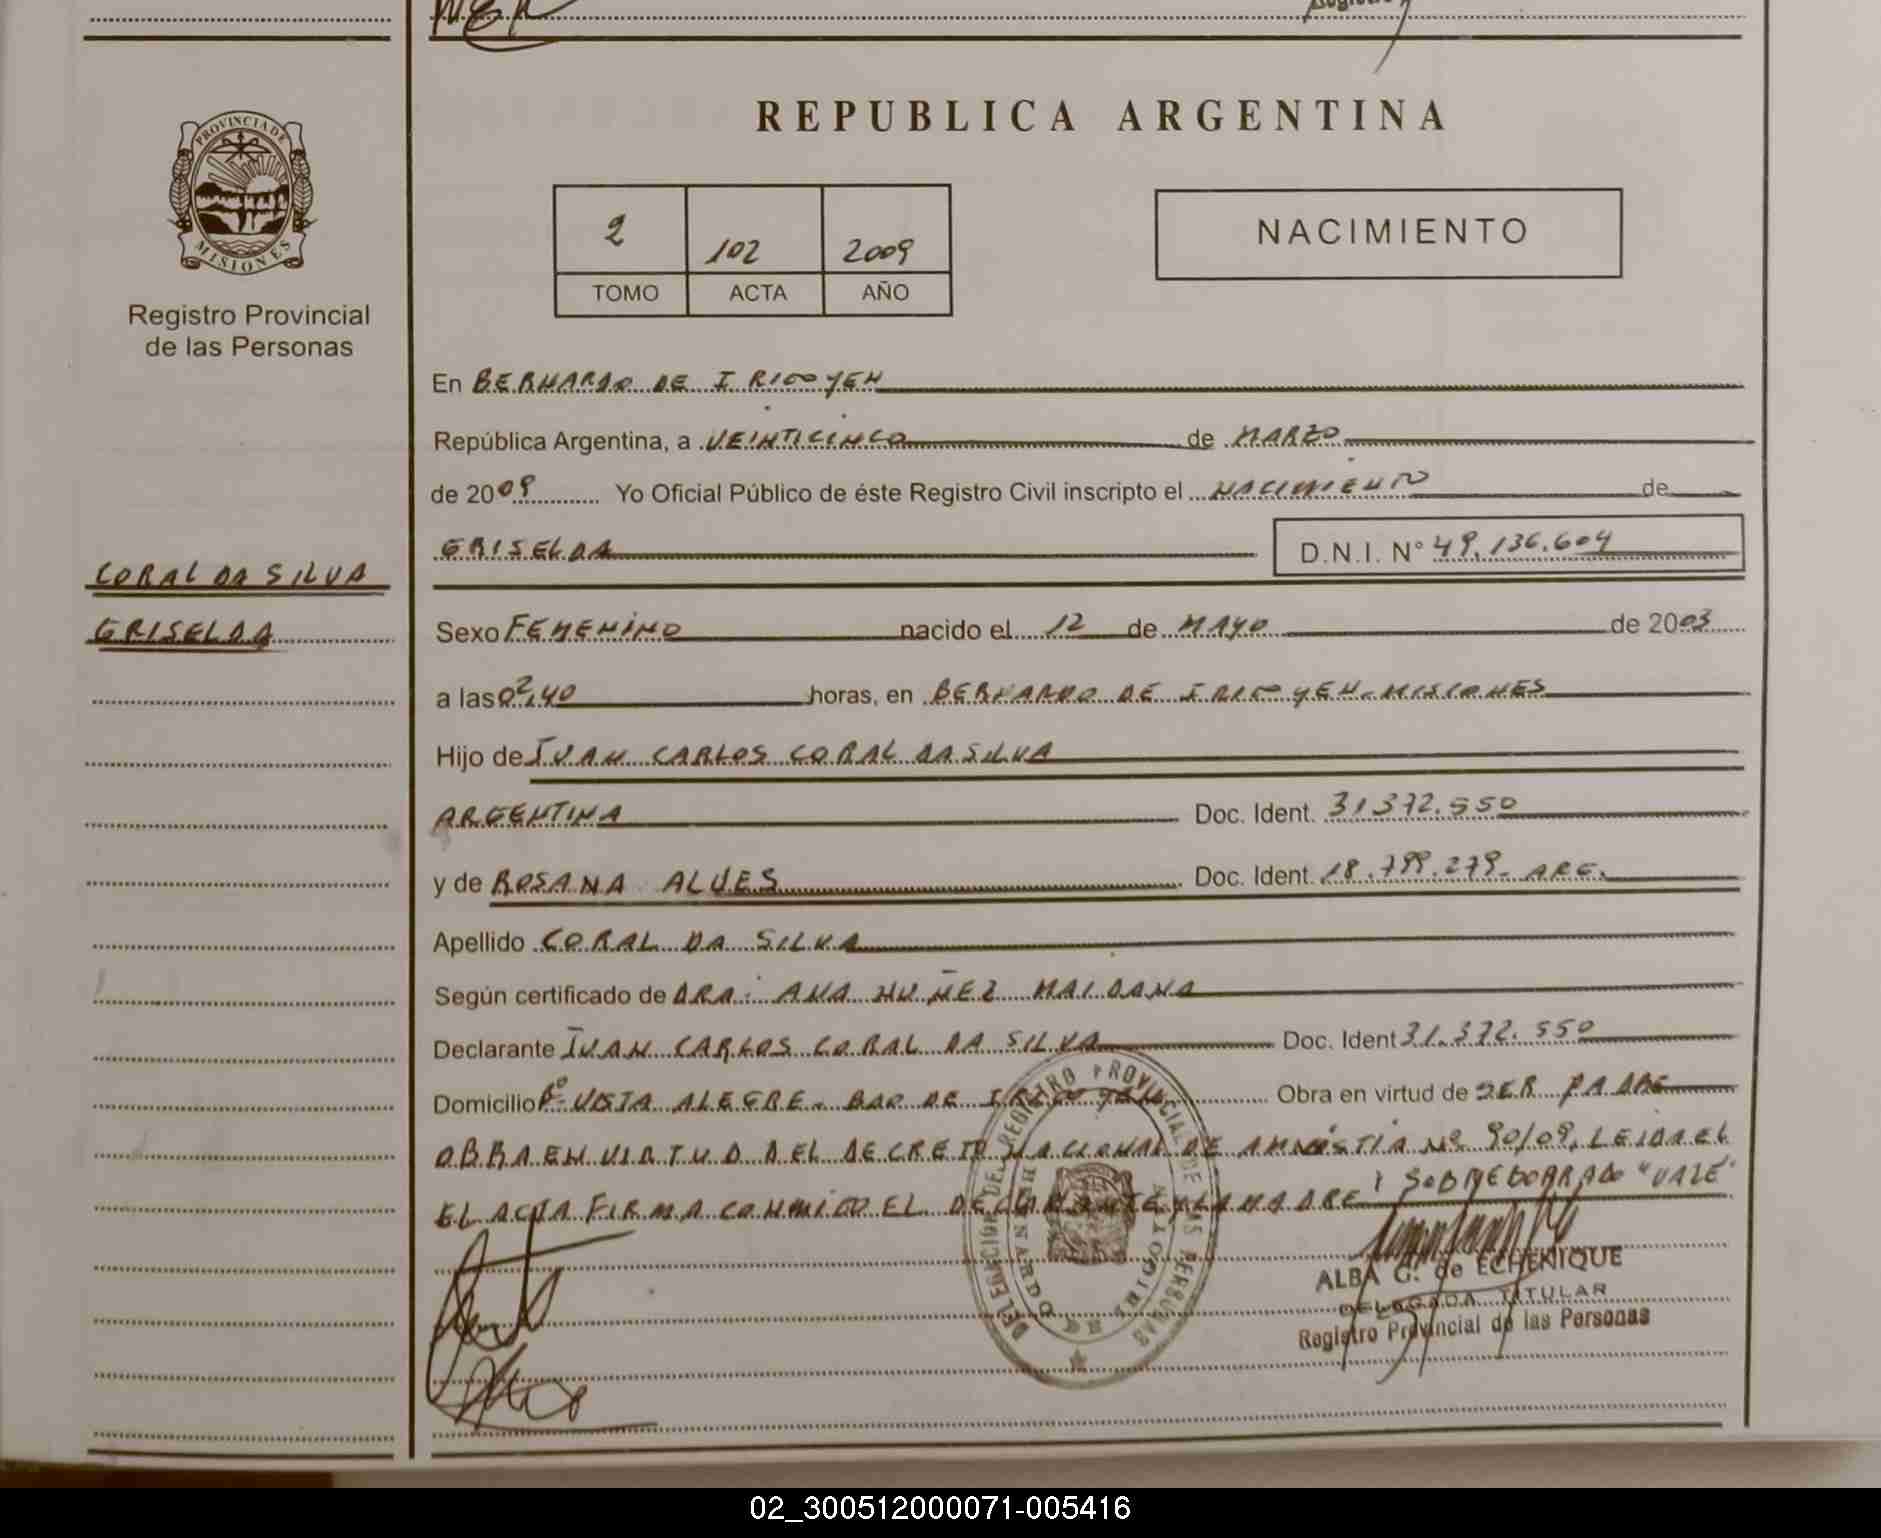 REPUBLICA ARGENTINA
PROVINCIA DE
MISIONES
Registro Provincial
de las Personas
2 102 2009
TOMO ACTA AÑO
NACIMIENTO
En BERNARDO DE IRIGOYEN
República Argentina, a VEINTICINCO de MARZO
de 2009 Yo Oficial Público de éste Registro Civil inscripto el NACIMIENTO de
GRISELDA D.N.I. N° 49.136.604
CORAL DA SILVA
GRISELDA
Sexo FEMENINO nacido el 12 de MAYO de 2003
a las 02,40 horas, en BERNARDO DE IRIGOYEN-MISIONES
Hijo de IVAN CARLOS CORAL DA SILVA
ARGENTINA Doc. Ident. 31372.550
y de ROSANA ALVES Doc. Ident. 18.799.279- ARG.
Apellido CORAL DA SILVA
Según certificado de DRA: ANA NUÑEZ MAIDANA
Declarante IVAN CARLOS CORAL DA SILVA Doc. Ident 31.372.550
Domicilio Bº- VISTA ALEGRE- BDO DE IRIGOYEN Obra en virtud de SER PADRE
OBRA EN VIRTUD DEL DECRETO NACIONAL DE AMNISTIA Nº 90/09. LEIDA EL
EL ACTA FIRMA CONMIGO EL DECLARANTE Y LA MADRE SOBREBORRADO "VALE"
DELEGACION DEL REGISTRO PROVINCIAL DE LAS PERSONAS
BERNARDO DE IRIGOYEN
ALBA G. de ECHENIQUE
DELEGADA TITULAR
Registro Provincial de las Personas
02_300512000071-005416